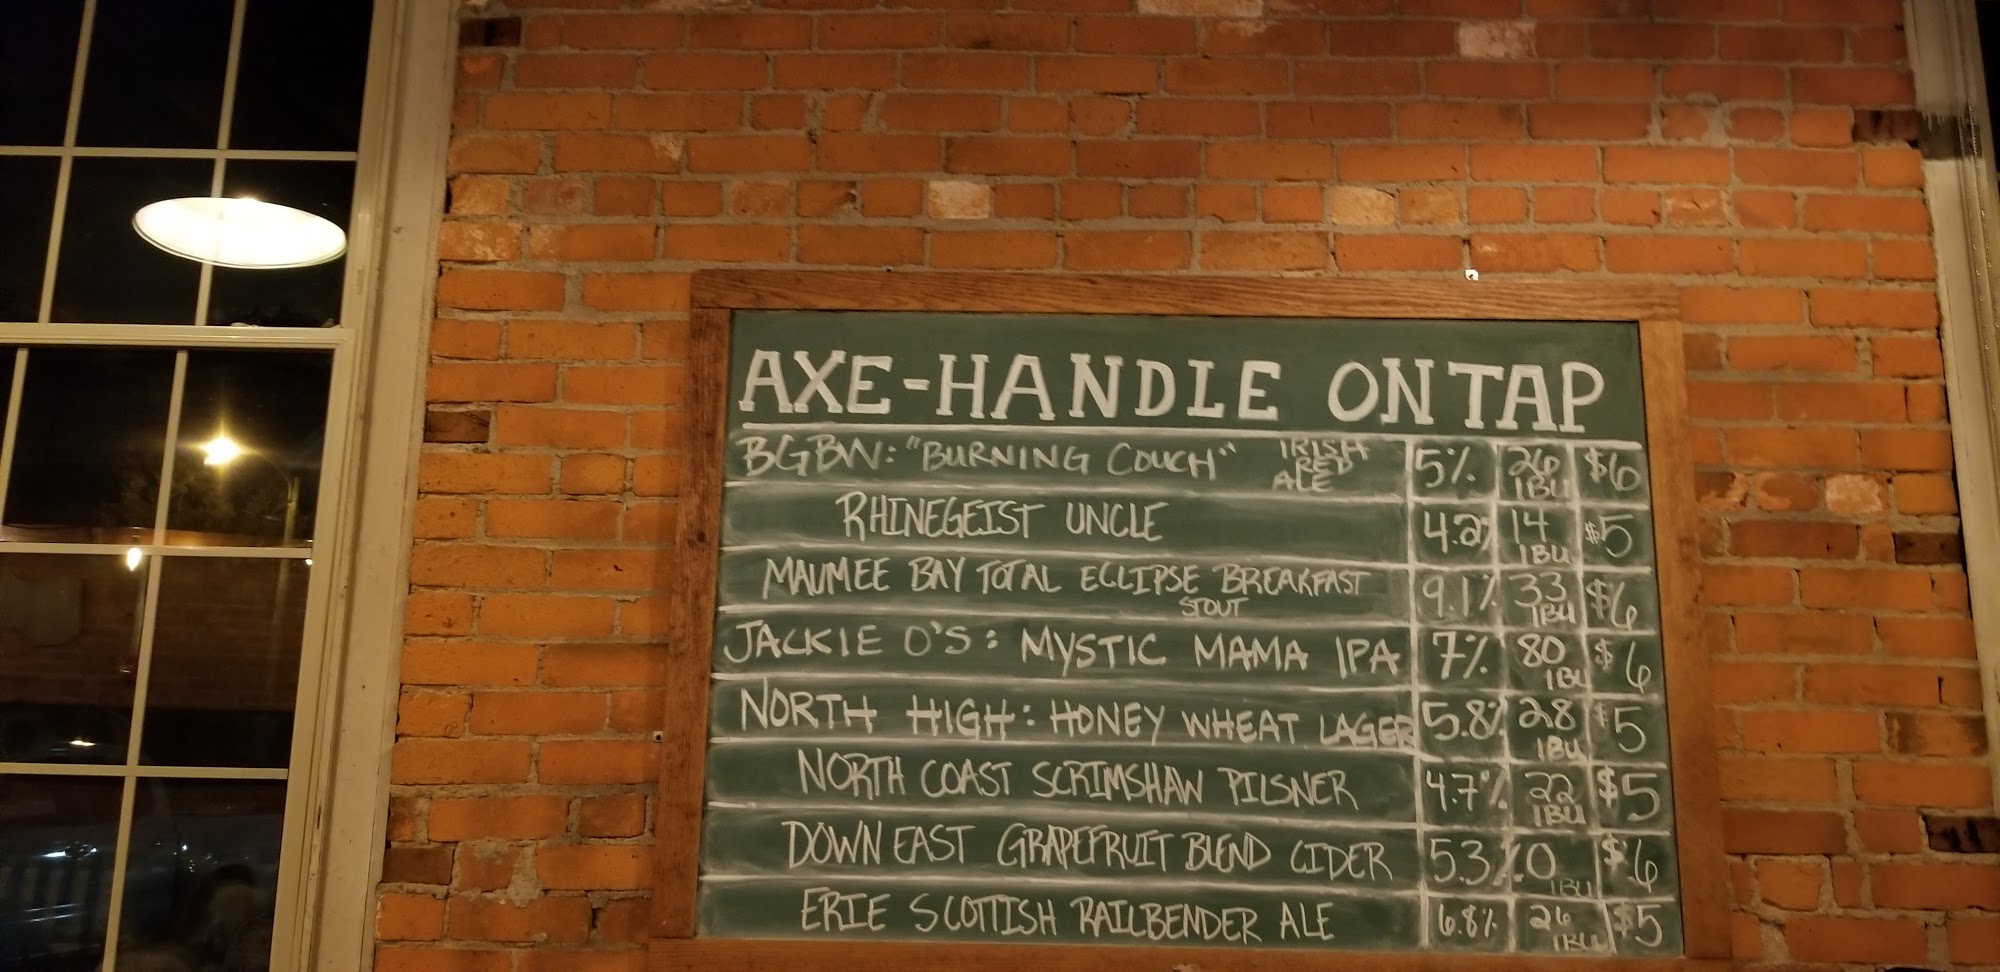 AXE-HANDLE ON TAP
BGBW: "BURNING COUCH" IRISH RED ALE 5% 26 IBU $6
RHINEGEIST UNCLE 4.2% 14 IBU $5
MAUMEE BAY TOTAL ECLIPSE BREAKFAST STOUT 9.1% 33 IBU $6
JACKIE O'S: MYSTIC MAMA IPA 7% 80 IBU $6
NORTH HIGH: HONEY WHEAT LAGER 5.8% 28 IBU $5
NORTH COAST SCRIMSHAW PILSNER 4.7% 22 IBU $5
DOWN EAST GRAPEFRUIT BLEND CIDER 5.3% 0 IBU $6
ERIE SCOTTISH RAILBENDER ALE 6.8% 26 IBU $5